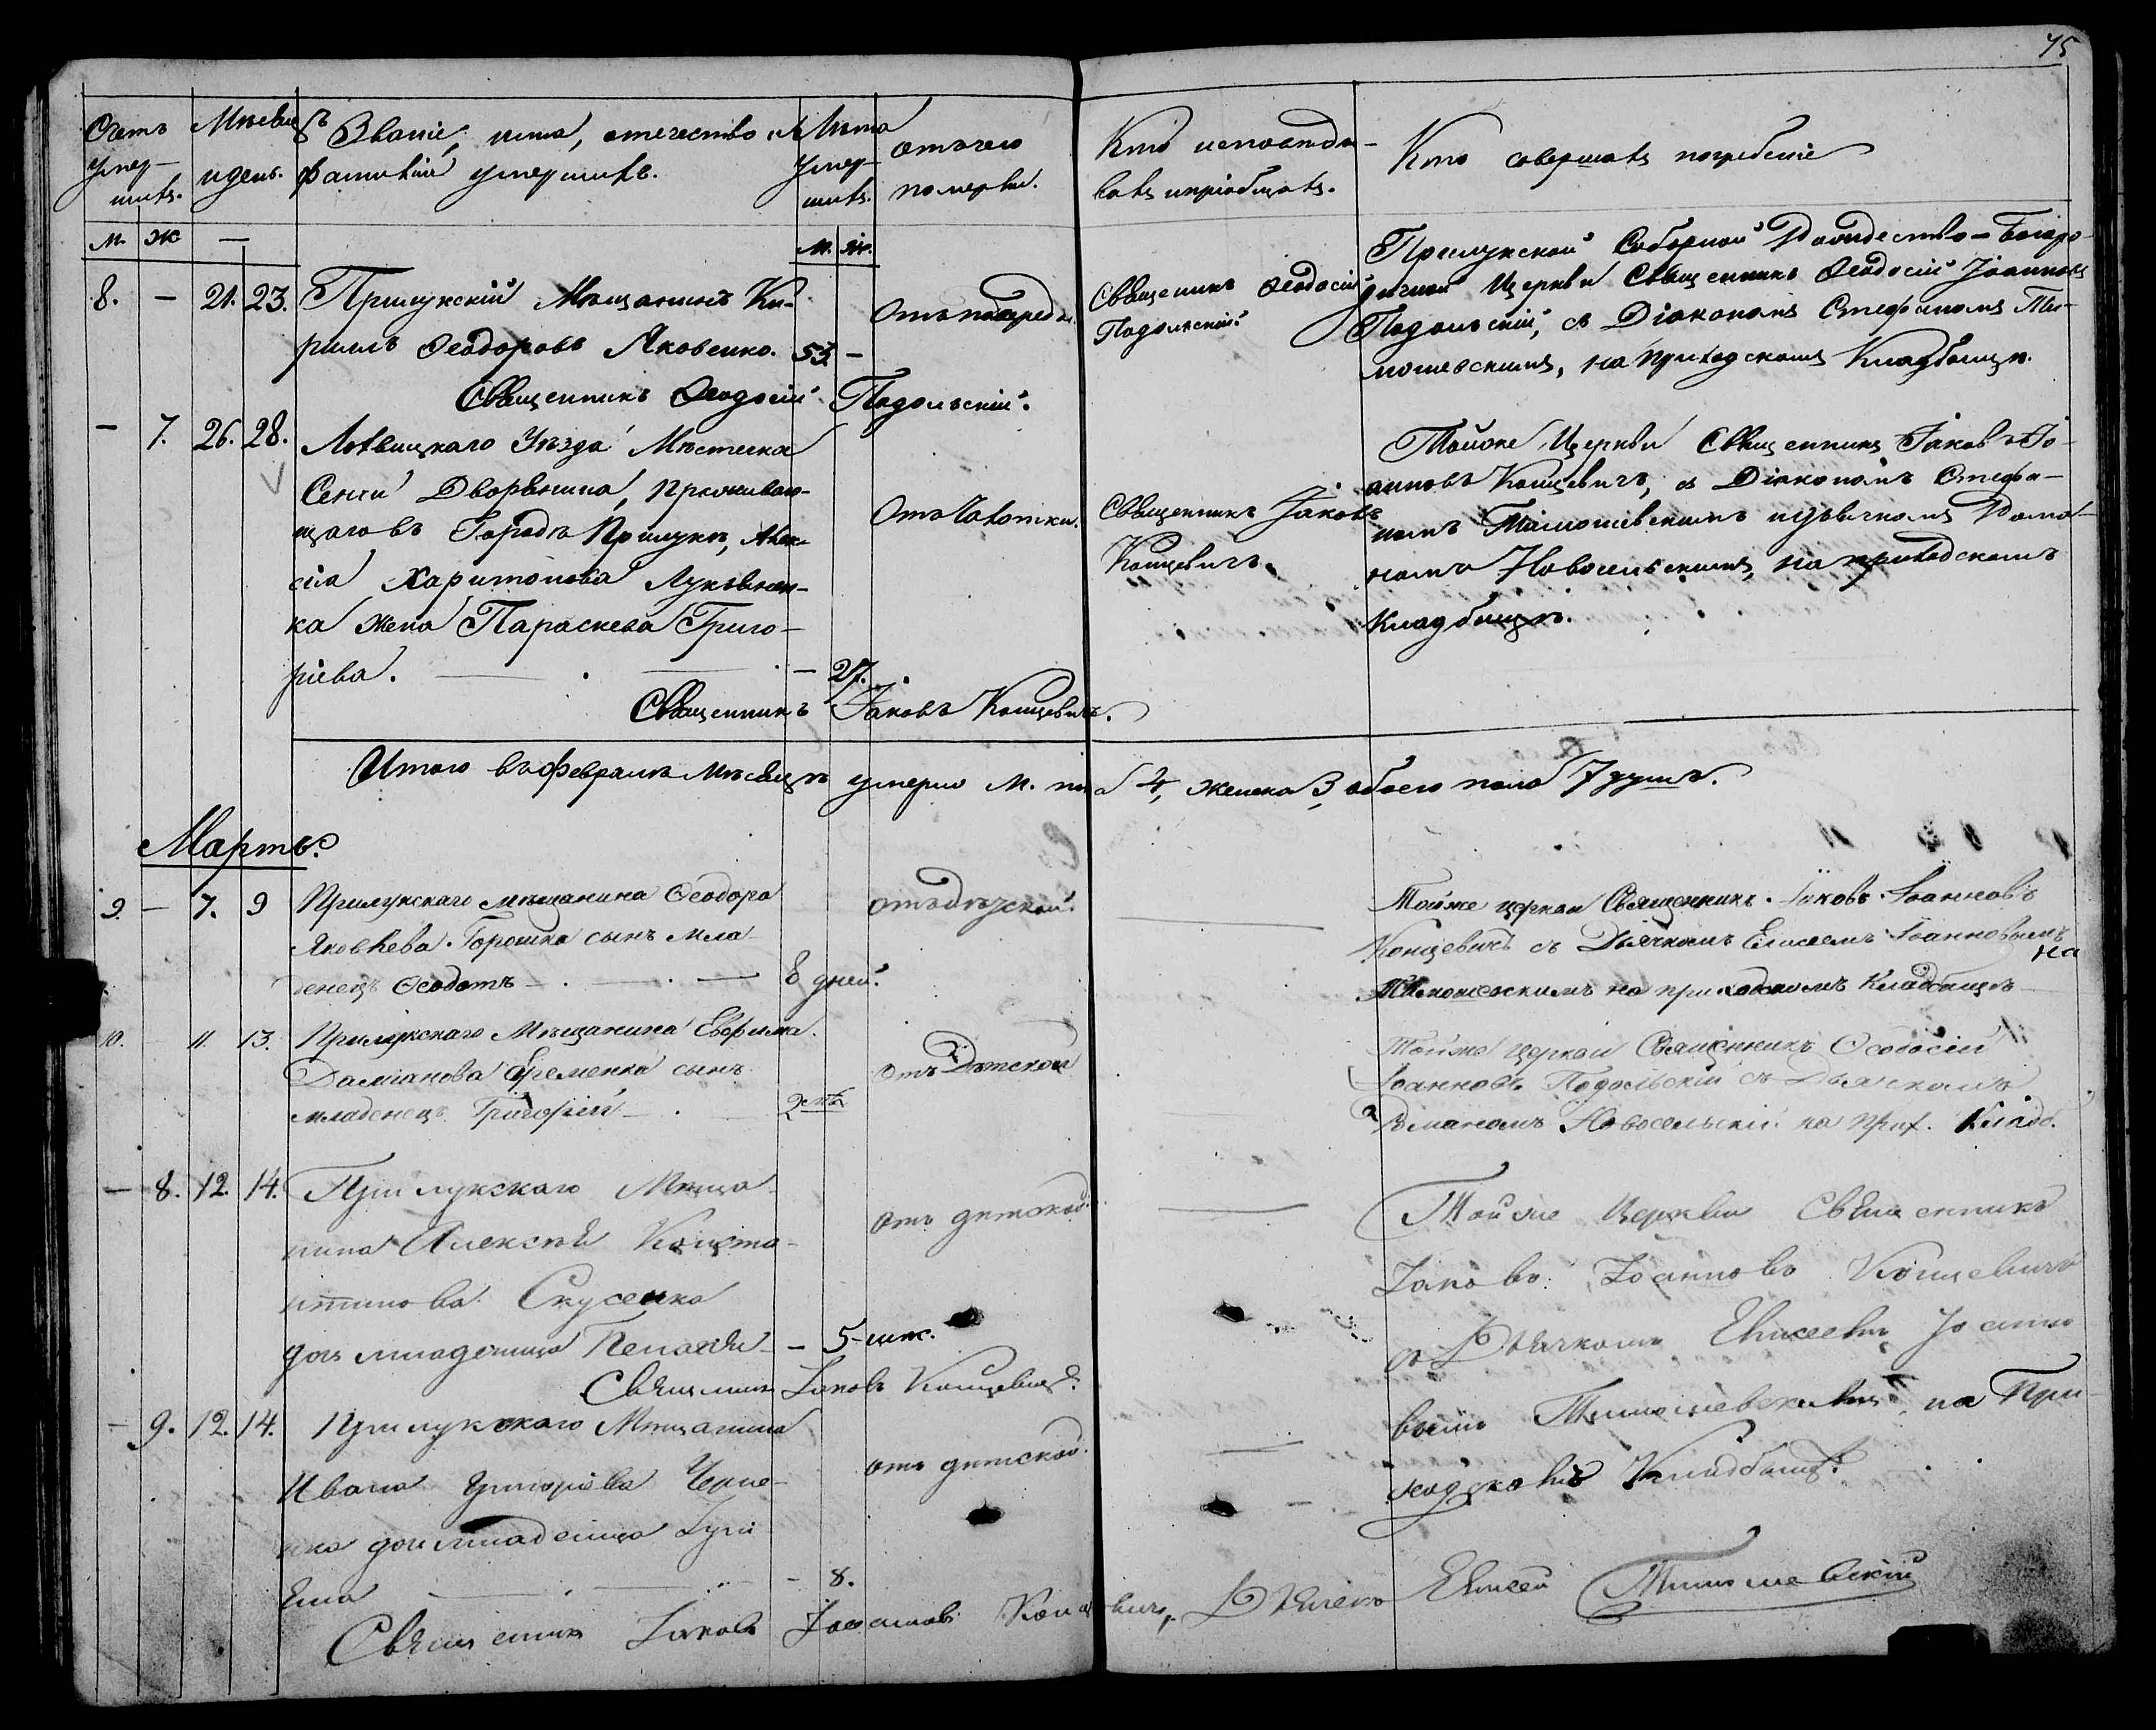 75
Счетъ умер-шихъ.
Мѣсяцъ и день.
Званіе, имя, отечество и фамилія умершихъ.
Лѣта умер-шихъ.
отъ чего померли.
Кто исповѣды-валъ и пріобщалъ.
Кто совершалъ погребеніе
м. ж —
м. ж.
8. — 21. 23. Прилукскій Мѣщанинъ Ки-
риллъ Ѳеодоровъ Яковенко. 53 —
Священникъ Ѳеодосій
Подольскій.
Прилукской Соборной Рождество-Богоро-
дичной Церкви Священникъ Ѳеодосій Іоанновъ
Подольскій, съ Діакономъ Стефаномъ Ти-
мошевскимъ, на приходскомъ Кладбищѣ.
Священникъ Ѳеодосій Подольскій.
— 7. 26. 28. Лохвицкаго Уѣзда Мѣстечка
Сенчи Дворянина, проживаю-
щаго въ Городѣ Прилукѣ, Алек-
сія Харитонова Лукьянен-
ка жена Параскева Григо-
ріева. — — — 27.
Отъ Чахотки.
Священникъ Іаковъ
Концевичъ.
Тойже Церкви Священникъ Іаковъ Іо-
анновъ Концевичъ, съ Діакономъ Стефа-
номъ Тимошевскимъ и дьячкомъ Рома-
номъ Новосельскимъ, на приходскомъ
Кладбищѣ.
Священникъ Іаковъ Концевичъ.
Итого въ Февралѣ Мѣсяцѣ умерло м. пола 4, женска 3, обоего пола 7 душъ.
Мартъ.
9. — 7. 9 Прилукскаго мѣщанина Ѳеодора
Яковлева Горошка сынъ мла-
денецъ Ѳеодотъ — — 8 дней.
отъ дѣтской.
Тойже церкви Священникъ Іаковъ Іоанновъ
Концевичъ съ Дьячкомъ Елисеемъ Іоанновымъ
на
Тимошевскимъ на приходскомъ Кладбищѣ
10. 11. 13. Прилукскаго Мѣщанина Евфима
Даміанова Еременка сынъ
младенецъ Григорій — 2
отъ Дѣтской
Тойже церкви Священникъ Ѳеодосій
Іоанновъ Подольскій съ Дьячкомъ
Романомъ Новосельскій на прих. Кладб.
— 8. 12. 14. Прилукскаго Мѣща-
нина Алексѣя Конста-
нтинова Скусенка
дочь младеница Пелагія — 5 мѣс.
отъ дѣтской.
Тойже Церкви Священникъ
Іаковъ Іоанновъ Концевичъ
съ Дьячкомъ Елисеемъ Іоанно
вымъ Тимошевскимъ на При-
ходскомъ Кладбищѣ.
Священникъ Іаковъ Концевичъ.
— 9. 12. 14. Прилукскаго Мѣщанина
Ивана Григоріева Черне-
нка дочь младеница Іулі
анія — — 8.
отъ дѣтской.
Священникъ Іаковъ Іоанновъ Концевичъ, Дьячекъ Елисей Тимошевскій